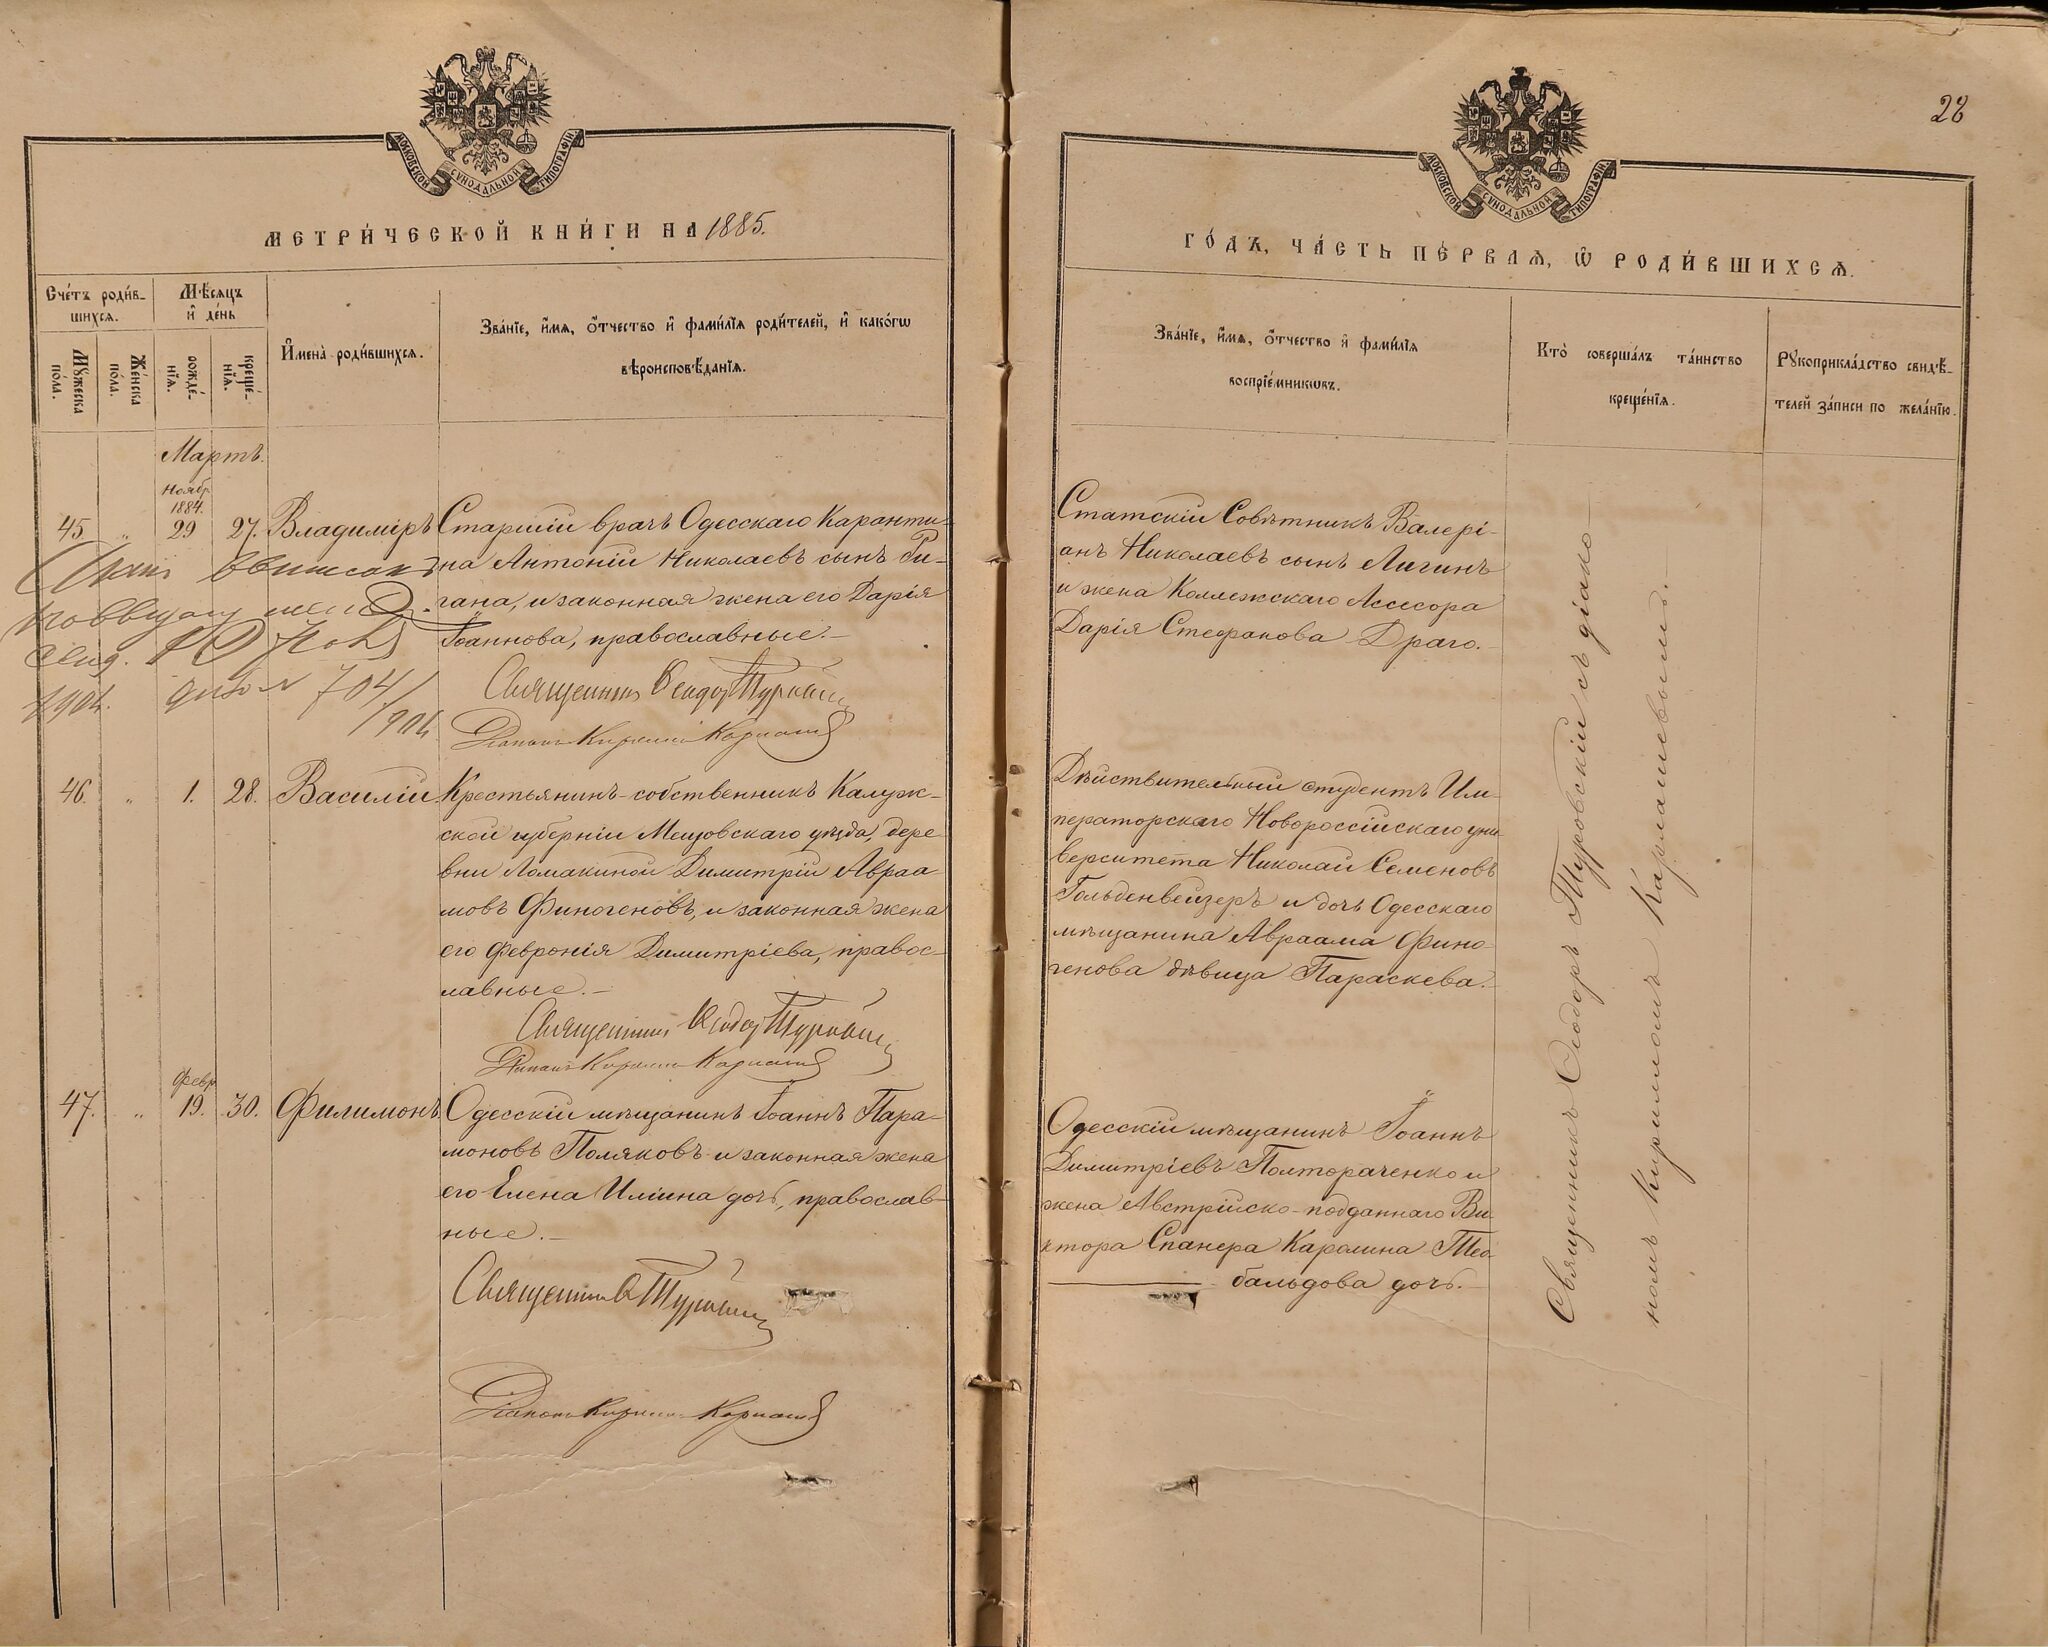 МОСКОВСКОЙ СУНОДАЛЬНОЙ ТИПОГРАФІИ
МЕТРИ́ЧЕСКОЙ КНИ́ГИ НА 1885.
Сче́тъ роди́в-
шихсѧ.
Мѣ́сѧцъ
и҆ де́нь
Мꙋ́жеска
по́ла.
Же́нска
по́ла.
рожде́-
нїѧ.
креще́-
нїѧ.
И҆мена̀ роди́вшихсѧ.
Зва́нїе, и҆́мѧ, ѻ҆́тчество и҆ фами́лїѧ роди́телей, и҆ како́гѡ
вѣроисповѣ́данїѧ.
Мартъ.
Ноябр.
1884.
45. " 29 27. Владиміръ
Старшій врачъ Одесскаго Каранти-
на Антоній Николаевъ сынъ Ги-
гана, и законная жена его Дарія
Іоаннова, православные.-
704/
1904.
Священникъ Ѳеодоръ Туровскій
Діаконъ Кириллъ Кармаш
46. " 1. 28. Василій
Крестьянинъ-собственникъ Калуж-
ской губерніи Мещовскаго уѣзда, дере
вни Ломакиной Димитрій Авраа-
мовъ Финогеновъ, и законная жена
его Февронія Димитріева, правос-
лавные.-
Священникъ Ѳеодоръ Туровскій
Діаконъ Кириллъ Кармаш
Февр.
47. " 19. 30. Филимонъ
Одесскій мѣщанинъ Іоаннъ Пара-
моновъ Поляковъ и законная жена
его Елена Иліина дочь, православ-
ные.-
Священникъ Ѳ Туровскій
Діаконъ Кириллъ Кармаш
28
МОСКОВСКОЙ СУНОДАЛЬНОЙ ТИПОГРАФІИ
ГО́ДЪ, ЧА́СТЬ ПЕ́РВАѦ, Ѡ҆ РОДИ́ВШИХСѦ.
Зва́нїе, и҆́мѧ, ѻ҆́тчество и҆ фами́лїѧ
воспрїе́мникѡвъ.
Кто̀ соверша́лъ та́инство
креще́нїѧ.
Рꙋкоприкла́дство свидѣ́-
телей за́писи по жела́нїю.
Статскій Совѣтникъ Валері-
анъ Николаевъ сынъ Лигинъ
и жена Коллежскаго Ассесора
Дарія Стефанова Драго.-
Дѣйствительный студентъ Им-
ператорскаго Новороссійскаго уни
верситета Николай Семеновъ
Гольденвейзеръ и дочь Одесскаго
мѣщанина Авраама Фино-
генова дѣвица Параскева.-
Одесскій мѣщанинъ Іоаннъ
Димитріевъ Полтораченко и
жена Австрійско-подданнаго Ви-
ктора Спанера Каролина Тео-
бальдова дочь.-
Священникъ Ѳеодоръ Туровскій съ діако-
номъ Кирилломъ Кармашевымъ.-